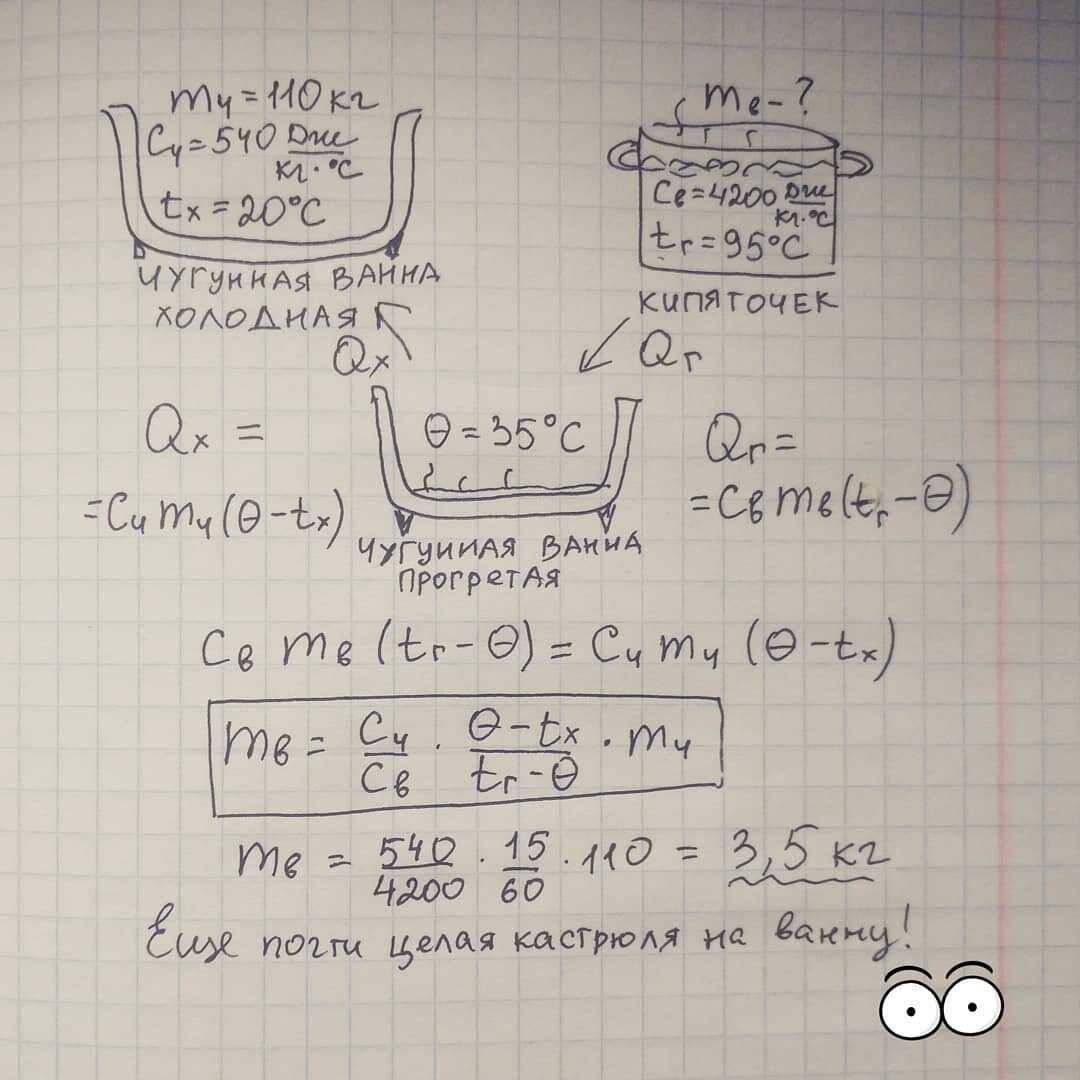 mч = 110 кг
Cч = 540 Дж/кг·°C
tх = 20°C
ЧУГУННАЯ ВАННА
ХОЛОДНАЯ
mв - ?
Cв = 4200 Дж/кг·°C
tг = 95°C
КИПЯТОЧЕК
Qх
Qг
Qх =
= Cч mч (θ - tх)
θ = 35°C
ЧУГУННАЯ ВАННА
ПРОГРЕТАЯ
Qг =
= Cв mв (tг - θ)
Cв mв (tг - θ) = Cч mч (θ - tх)
mв = Cч/Cв · (θ - tх)/(tг - θ) · mч
mв = 540/4200 · 15/60 · 110 = 3,5 кг
Еще почти целая кастрюля на ванну!